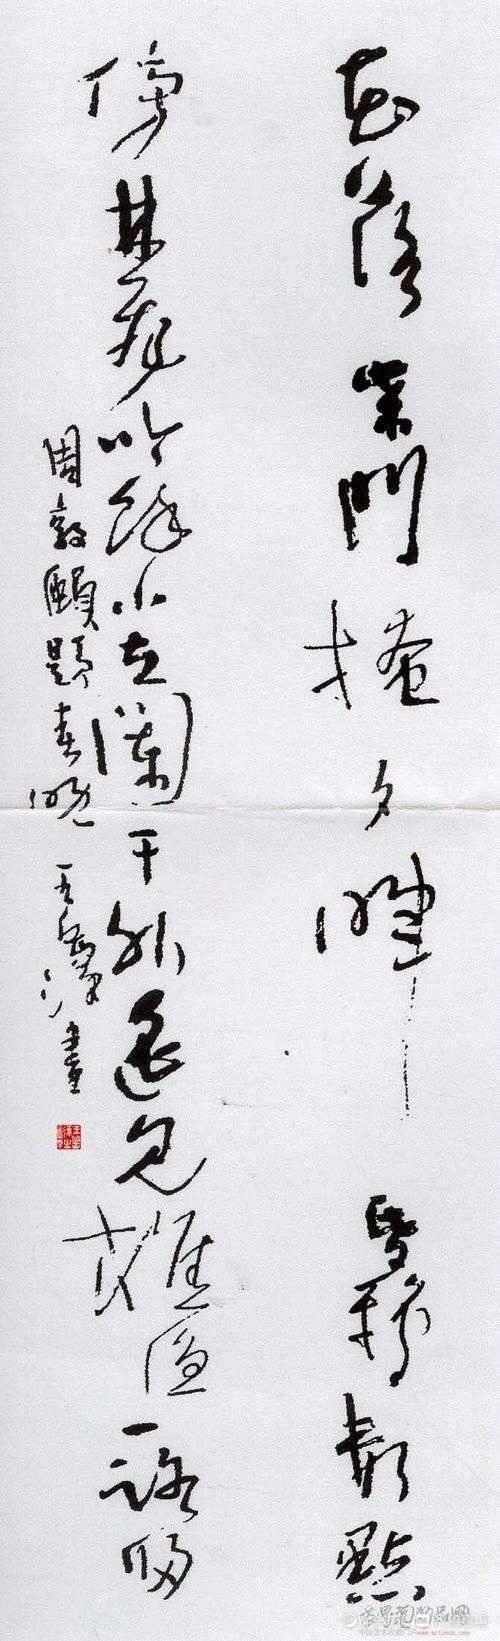 花落柴門掩夕暉昏鴉數點
傍林飛吟餘小立闌干外遙見樵漁一路歸
周敦頤題春晚 書